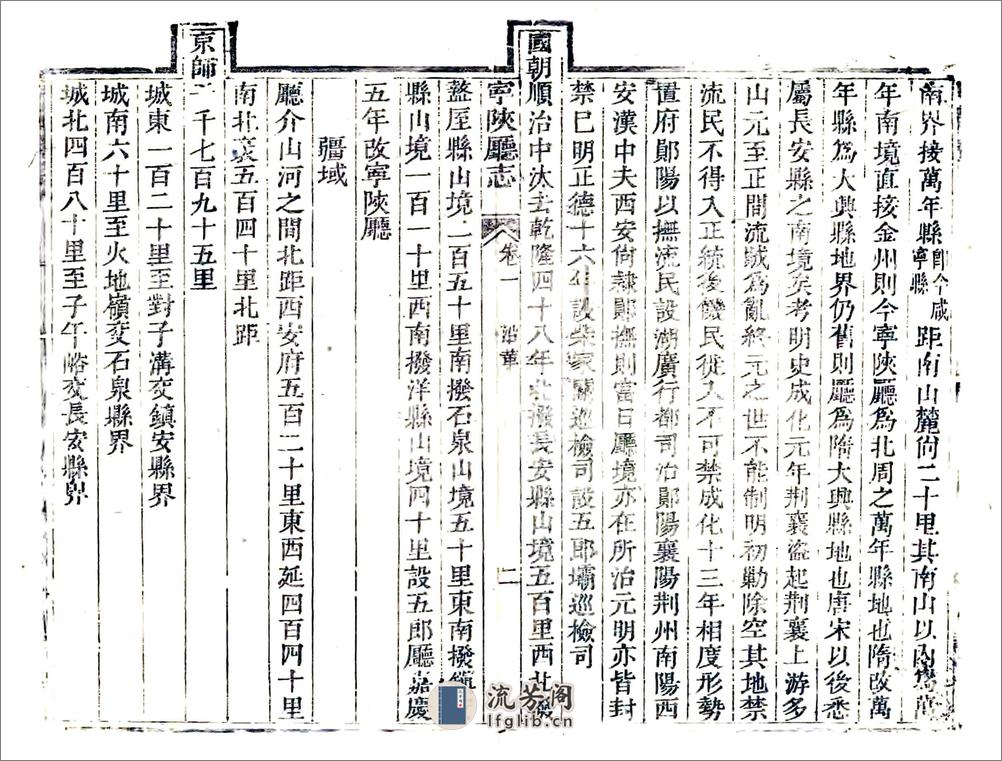 南界接萬年縣卽今咸寧縣距南山麓尙二十里其南山以內爲萬
年南境直接金州則今寧陝廳爲北周之萬年縣地也隋改萬
年縣爲大興縣地界仍舊則廳爲隋大興縣地也唐宋以後悉
屬長安縣之南境矣考明史成化元年荆襄盜起荆襄上游多
山元至正間流賊爲亂終元之世不能制明初勦除空其地禁
流民不得入正統後饑民徙入不可禁成化十三年相度形勢
置府鄖陽以撫流民設湖廣行都司治鄖陽襄陽荆州南陽西
安漢中夫西安尙隸鄖撫則當日廳境亦在所治元明亦皆封
禁巳明正德十六年設柴家關巡檢司設五郎壩巡檢司
國朝順治中汰去乾隆四十八年北撥長安縣山境五百里西北撥
寧陝廳志 卷一 沿革 二
盩厔縣山境二百五十里南撥石泉山境五十里東南撥鎭
縣山境一百一十里西南撥洋縣山境四十里設五郎廳嘉慶
五年改寧陝廳
疆域
廳介山河之間北距西安府五百二十里東西延四百四十里
南北袤五百四十里北距
京師二千七百九十五里
城東一百二十里至對子溝交鎭安縣界
城南六十里至火地嶺交石泉縣界
城北四百八十里至子午峪交長安縣界
流芳阁
lfglib.cn